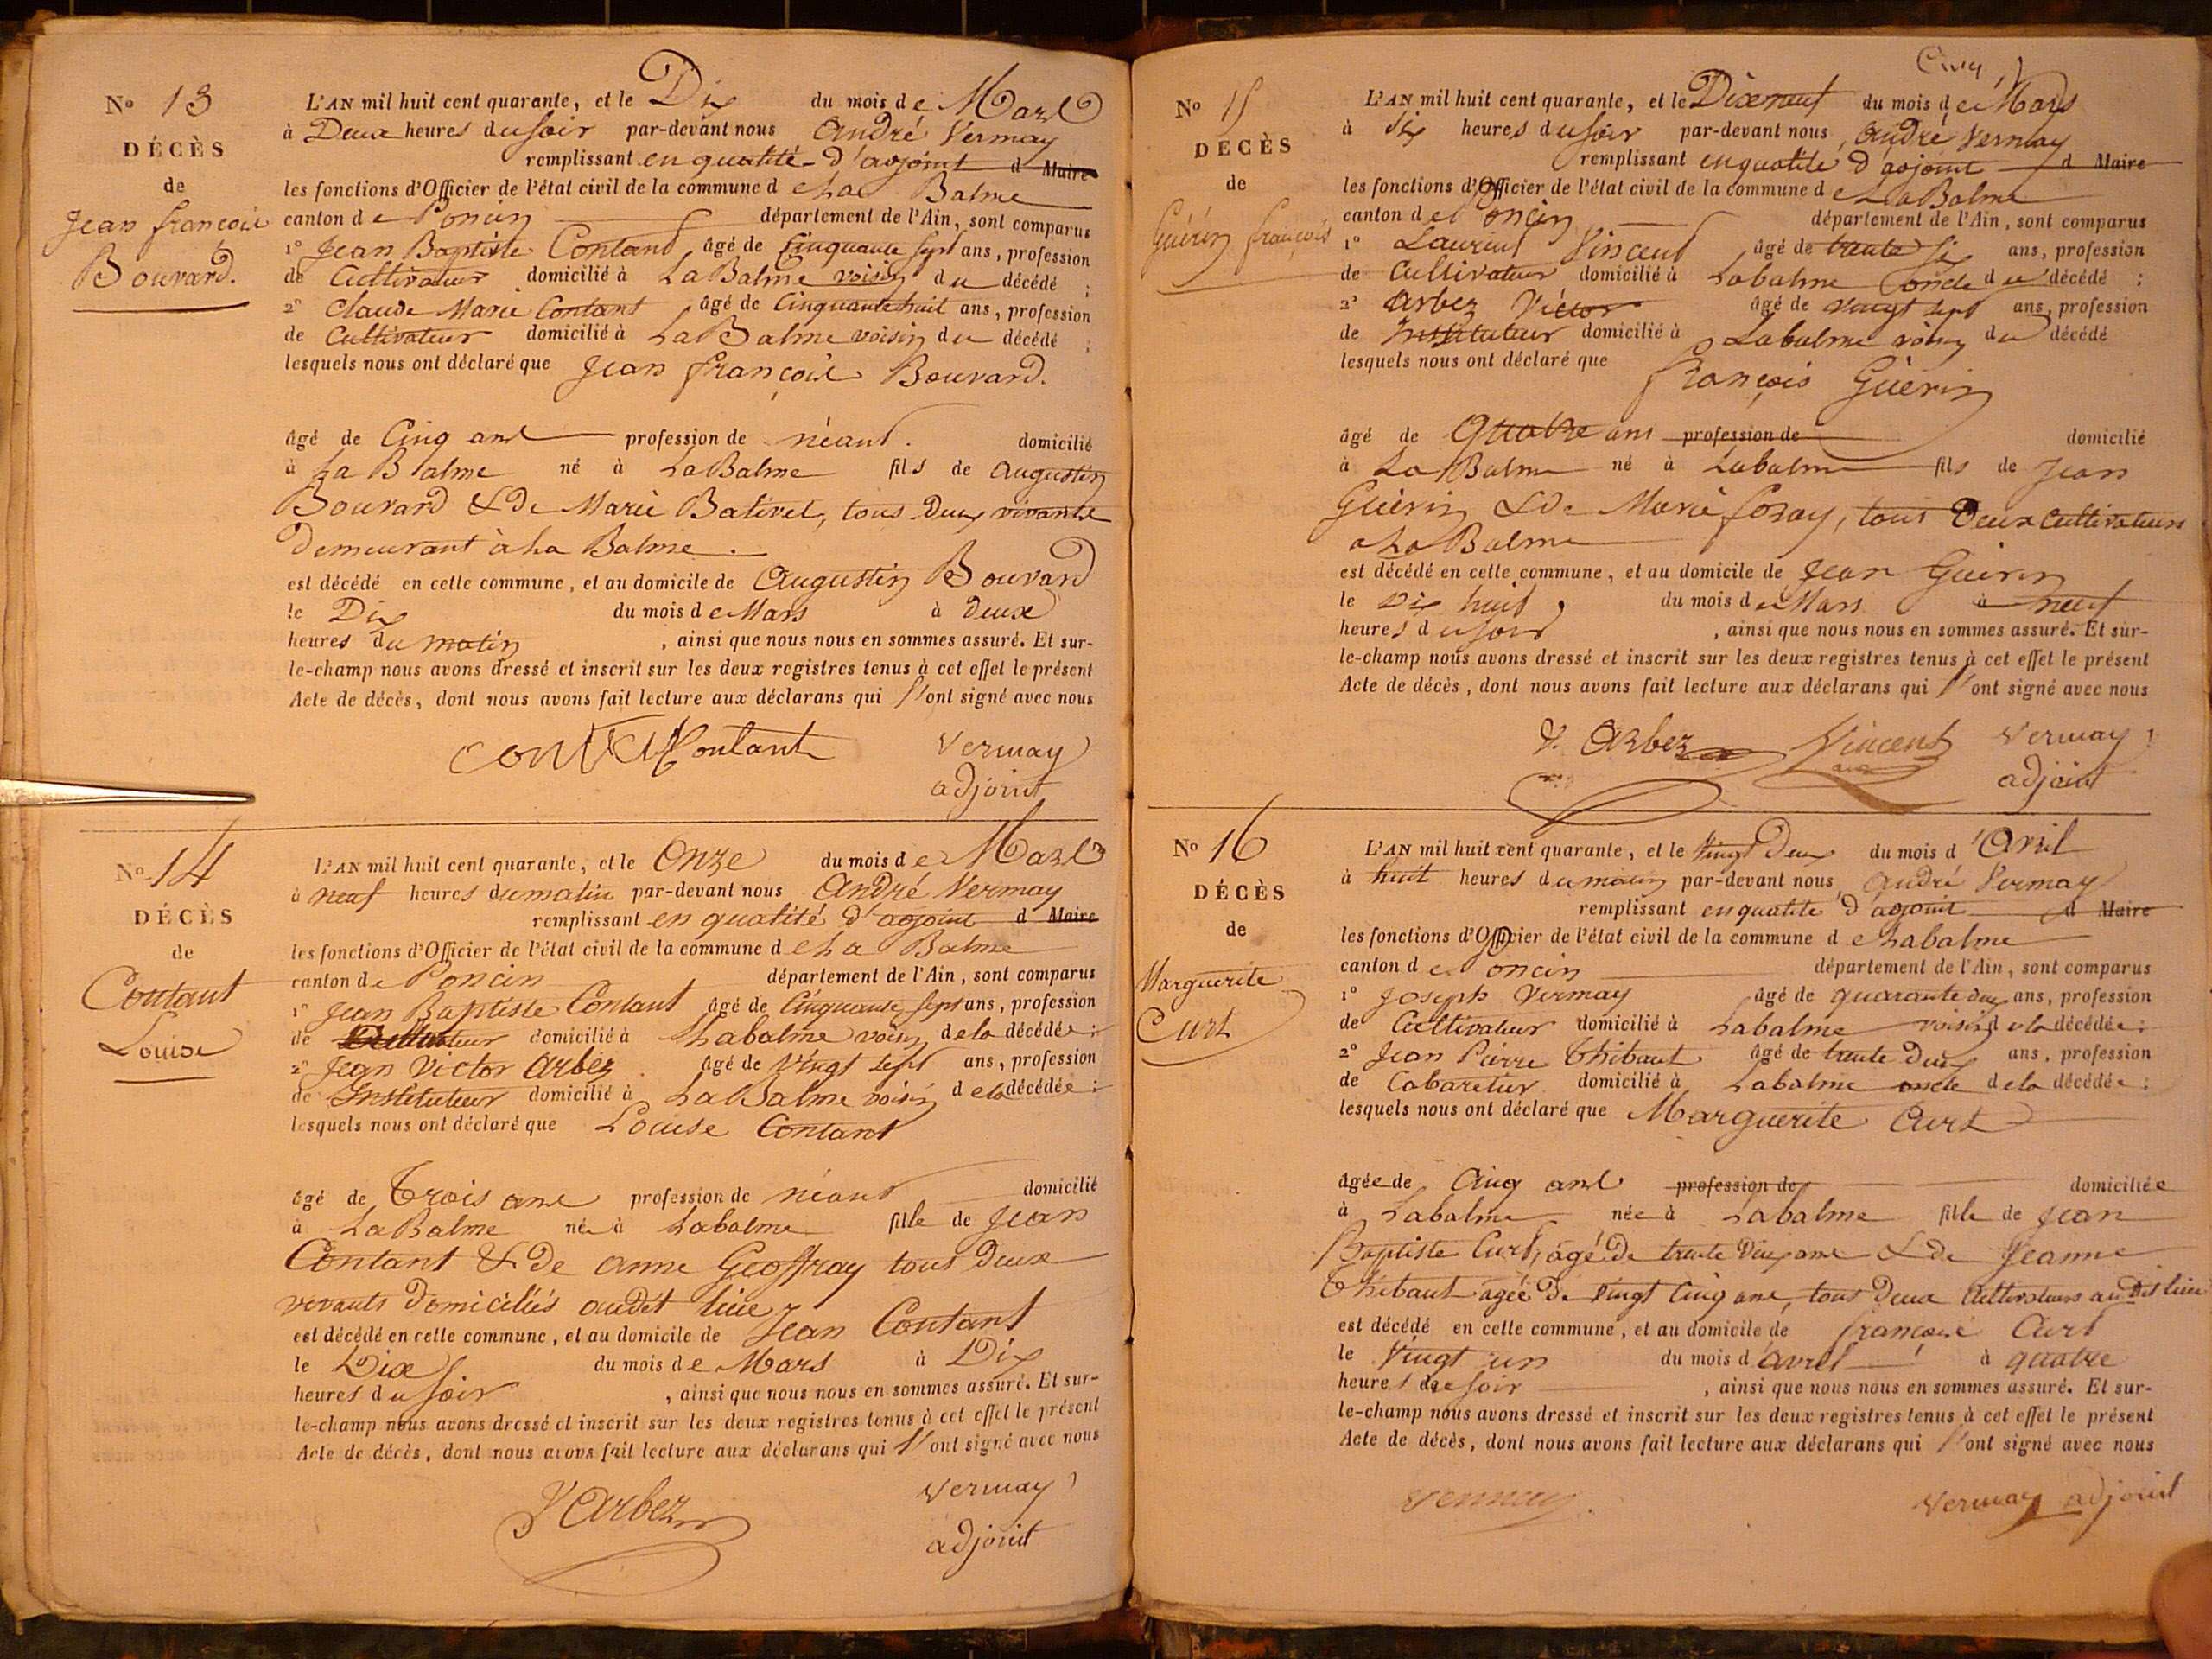 No 13
DÉCÈS
de
Jean françois
Bouvard.
L'AN mil huit cent quarante, et le Dix du mois de Mars
à Deux heures du soir par-devant nous André Vermay
remplissant en qualité d'adjoint d Maire
les fonctions d'Officier de l'état civil de la commune de La Balme
canton de Poncin département de l'Ain, sont comparus
1o Jean Baptiste Contant âgé de Cinquante sept ans, profession
de Cultivateur domicilié à La Balme voisin du décédé ;
2o Claude Marie Contant âgé de Cinquante huit ans, profession
de Cultivateur domicilié à La Balme voisin du décédé ;
lesquels nous ont déclaré que Jean françois Bouvard.
âgé de Cinq ans profession de néant. domicilié
à La Balme né à La Balme fils de Augustin
Bouvard & de Marie Bativet, tous deux vivants
demeurant à La Balme.
est décédé en cette commune, et au domicile de Augustin Bouvard
le Dix du mois de Mars à deux
heures du matin, ainsi que nous nous en sommes assuré. Et sur-
le-champ nous avons dressé et inscrit sur les deux registres tenus à cet effet le présent
Acte de décès, dont nous avons fait lecture aux déclarans qui l'ont signé avec nous
Contant Vermay
adjoint
No 14
DÉCÈS
de
Contant
Louise
L'AN mil huit cent quarante, et le Onze du mois de Mars
à neuf heures du matin par-devant nous André Vermay
remplissant en qualité d'adjoint d Maire
les fonctions d'Officier de l'état civil de la commune de La Balme
canton de Poncin département de l'Ain, sont comparus
1o Jean Baptiste Contant âgé de Cinquante sept ans, profession
de Cultivateur domicilié à Labalme voisin de la décédée ;
2o Jean Victor Arbez âgé de Vingt sept ans, profession
de Instituteur domicilié à La Balme voisin de la décédée ;
lesquels nous ont déclaré que Louise Contant
âgé de Trois ans profession de néant domicilié
à La Balme née à Labalme fille de Jean
Contant & de anne Geoffray tous deux
vivants domiciliés audit lieu
est décédé en cette commune, et au domicile de Jean Contant
le Dix du mois de Mars à Dix
heures du soir, ainsi que nous nous en sommes assuré. Et sur-
le-champ nous avons dressé et inscrit sur les deux registres tenus à cet effet le présent
Acte de décès, dont nous avons fait lecture aux déclarans qui l'ont signé avec nous
V Arbez Vermay
adjoint
Cinq
No 15
DÉCÈS
de
Guérin françois
L'AN mil huit cent quarante, et le Dix neuf du mois de Mars
à six heures du soir par-devant nous, André Vermay
remplissant en qualité d'adjoint d Maire
les fonctions d'Officier de l'état civil de la commune de La Balme
canton de Poncin département de l'Ain, sont comparus
1o Laurent Vincent âgé de trente six ans, profession
de Cultivateur domicilié à Labalme oncle du décédé ;
2o Arbez Victor âgé de vingt sept ans, profession
de Instituteur domicilié à Labalme voisin du décédé
lesquels nous ont déclaré que françois Guérin
âgé de Quatre ans profession de domicilié
à La Balme né à Labalme fils de Jean
Guérin & de Marie foray, tous Deux Cultivateurs
a La Balme
est décédé en cette commune, et au domicile de Jean Guérin
le Dix huit du mois de Mars à neuf
heures du soir, ainsi que nous nous en sommes assuré. Et sur-
le-champ nous avons dressé et inscrit sur les deux registres tenus à cet effet le présent
Acte de décès, dont nous avons fait lecture aux déclarans qui l'ont signé avec nous
V. Arbez Vincent Vermay
adjoint
No 16
DÉCÈS
de
Marguerite
Curt
L'AN mil huit cent quarante, et le Vingt Deux du mois d'Avril
à huit heures du matin par-devant nous, André Vermay
remplissant en qualité d'adjoint d Maire
les fonctions d'Officier de l'état civil de la commune de Labalme
canton de Poncin département de l'Ain, sont comparus
1o Joseph Vermay âgé de quarante deux ans, profession
de Cultivateur domicilié à Labalme voisin de la décédée ;
2o Jean Pierre Thibaut âgé de trente Deux ans, profession
de Cabaretier domicilié à Labalme oncle de la décédée ;
lesquels nous ont déclaré que Marguerite Curt
âgée de Cinq ans profession de domiciliée
à Labalme née à Labalme fille de Jean
Baptiste Curt, âgé de trente Deux ans & de Jeanne
Thibaut âgée de Vingt Cinq ans, tous Deux Cultivateurs au Dit lieu
est décédé en cette commune, et au domicile de françois Curt
le Vingt un du mois d'avril à quatre
heures du soir, ainsi que nous nous en sommes assuré. Et sur-
le-champ nous avons dressé et inscrit sur les deux registres tenus à cet effet le présent
Acte de décès, dont nous avons fait lecture aux déclarans qui l'ont signé avec nous
Vermay Vermay adjoint